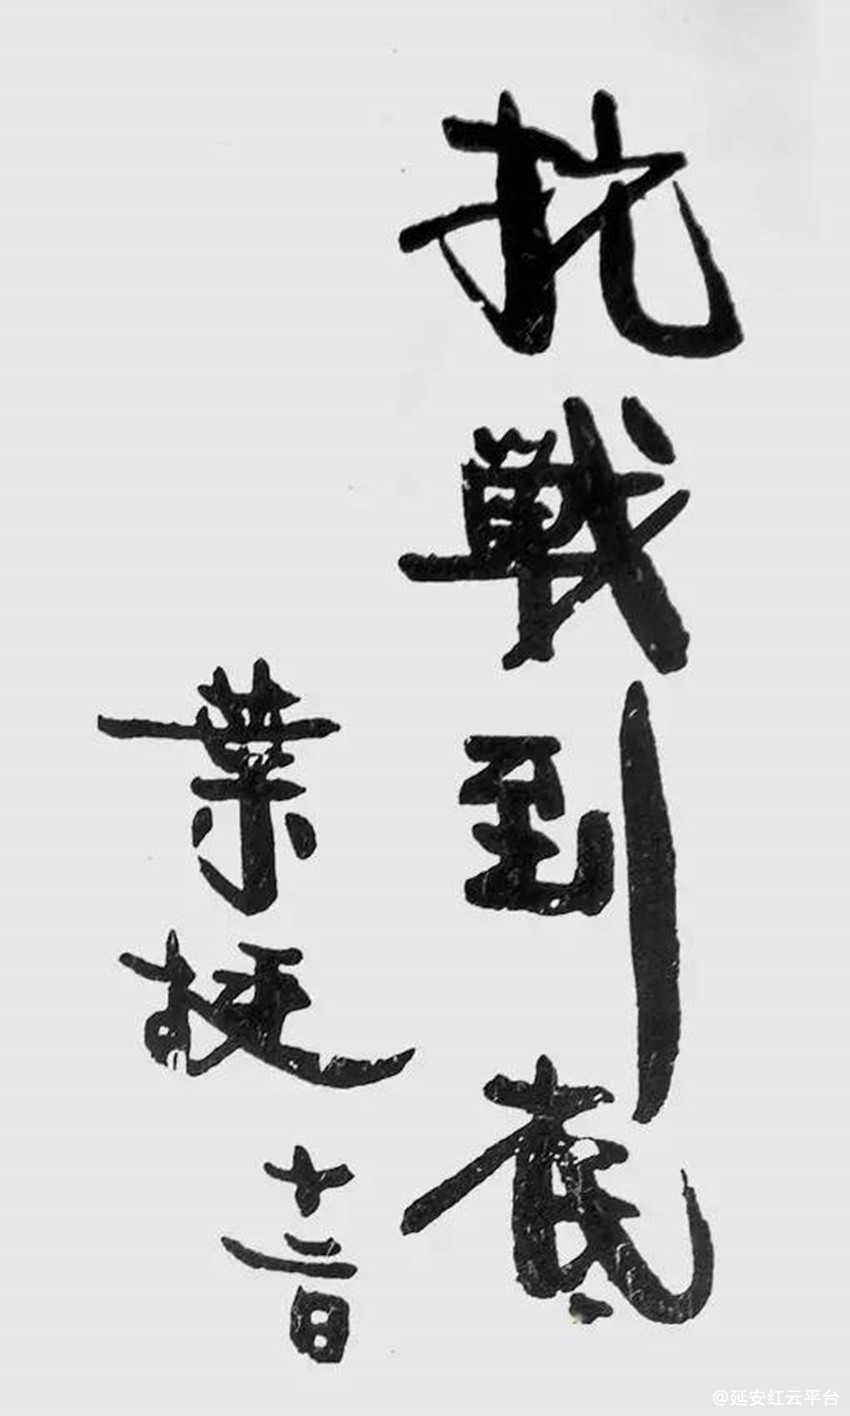 抗戰到底
葉挺
十二日
@延安红云平台